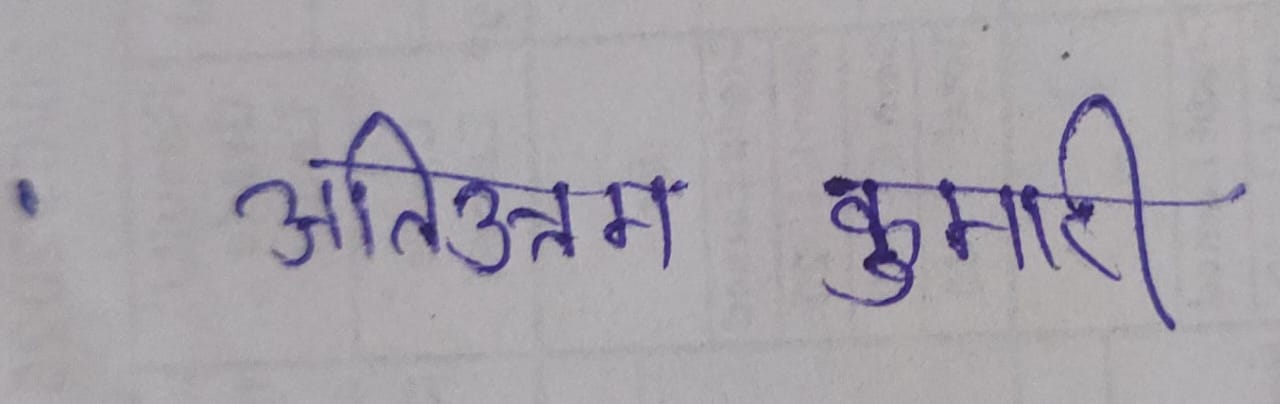 अतिउत्तम कुमारी